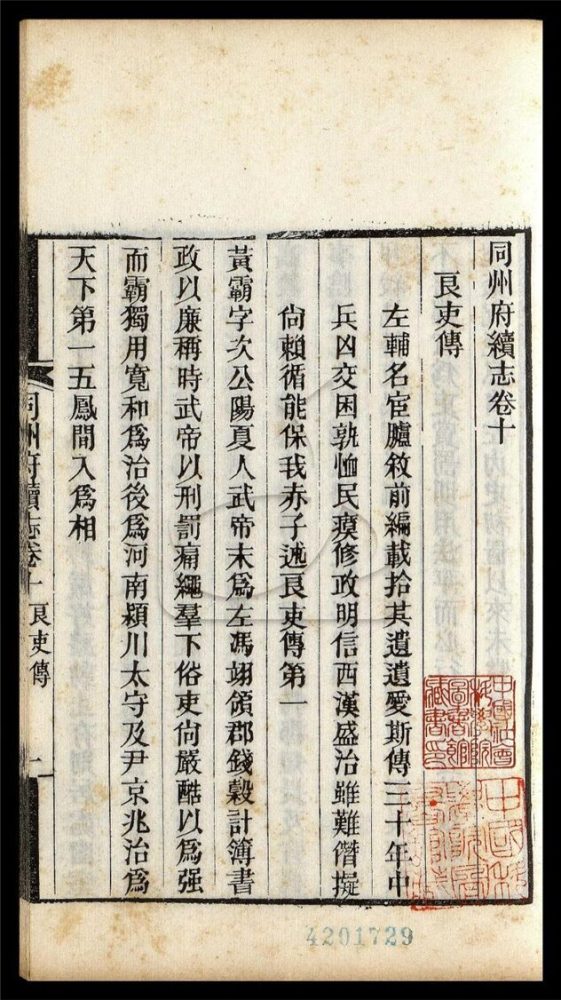 同州府續志卷十
良吏傳
左輔名宦臚敘前編載拾其遺遺愛斯傳三十年中
兵凶交困孰恤民瘼修政明信西漢盛治雖難僭擬
尙賴循能保我赤子述良吏傳第一
黃霸字次公陽夏人武帝末爲左馮翊領郡錢穀計簿書
政以廉稱時武帝以刑罰痛繩羣下俗吏尙嚴酷以爲强
而霸獨用寬和爲治後爲河南潁川太守及尹京兆治爲
天下第一五鳳間入爲相
同州府續志卷十 良吏傳 一
中國社會
科學院
圖書館
藏書印
4201729